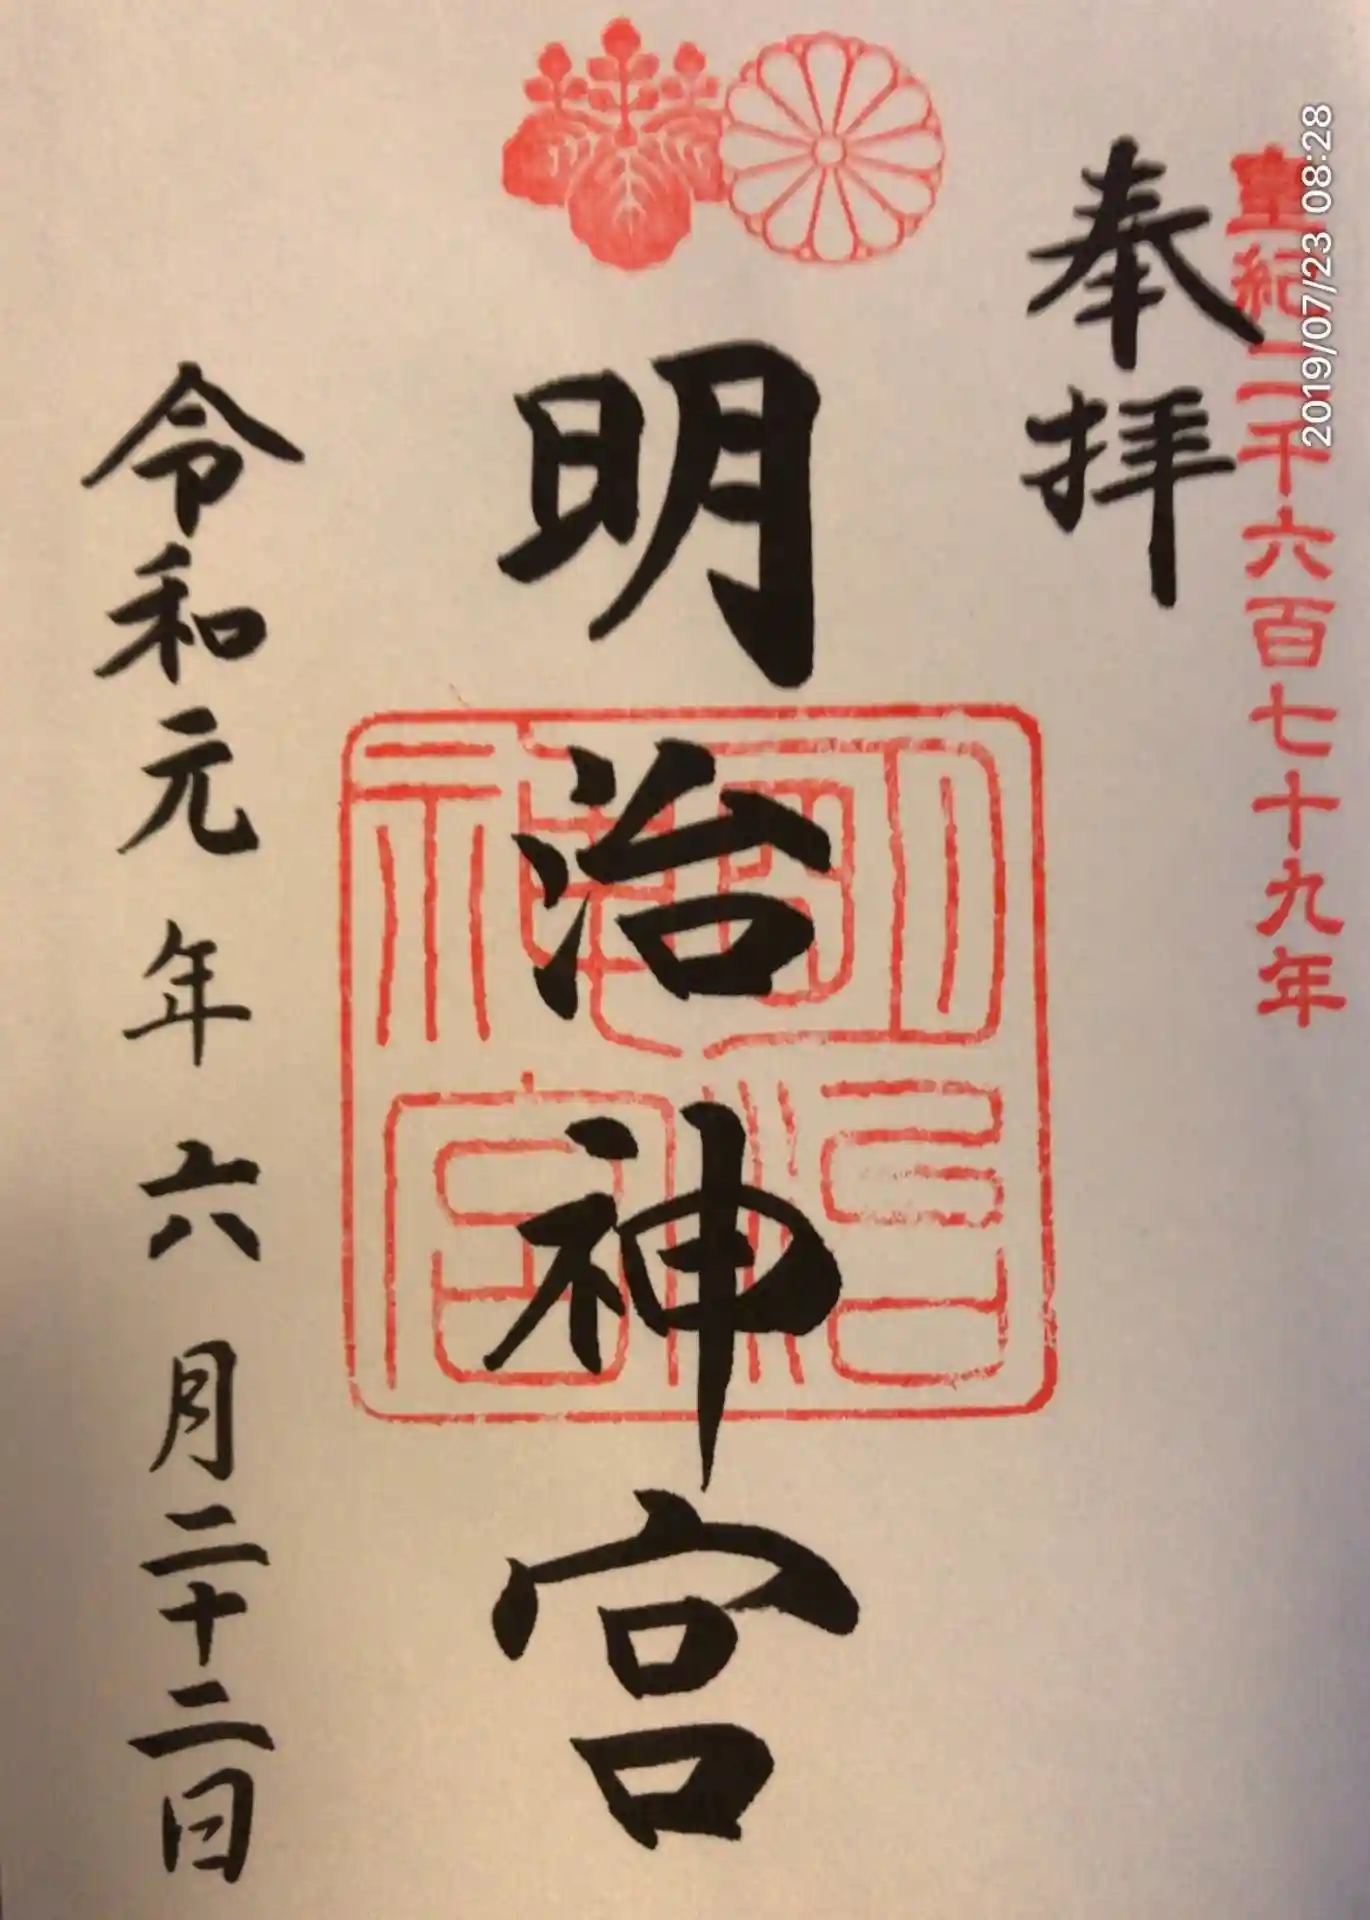 皇紀二千六百七十九年
奉拝
明治神宮
明治神宮
令和元年六月二十二日
2019/07/23 08:28